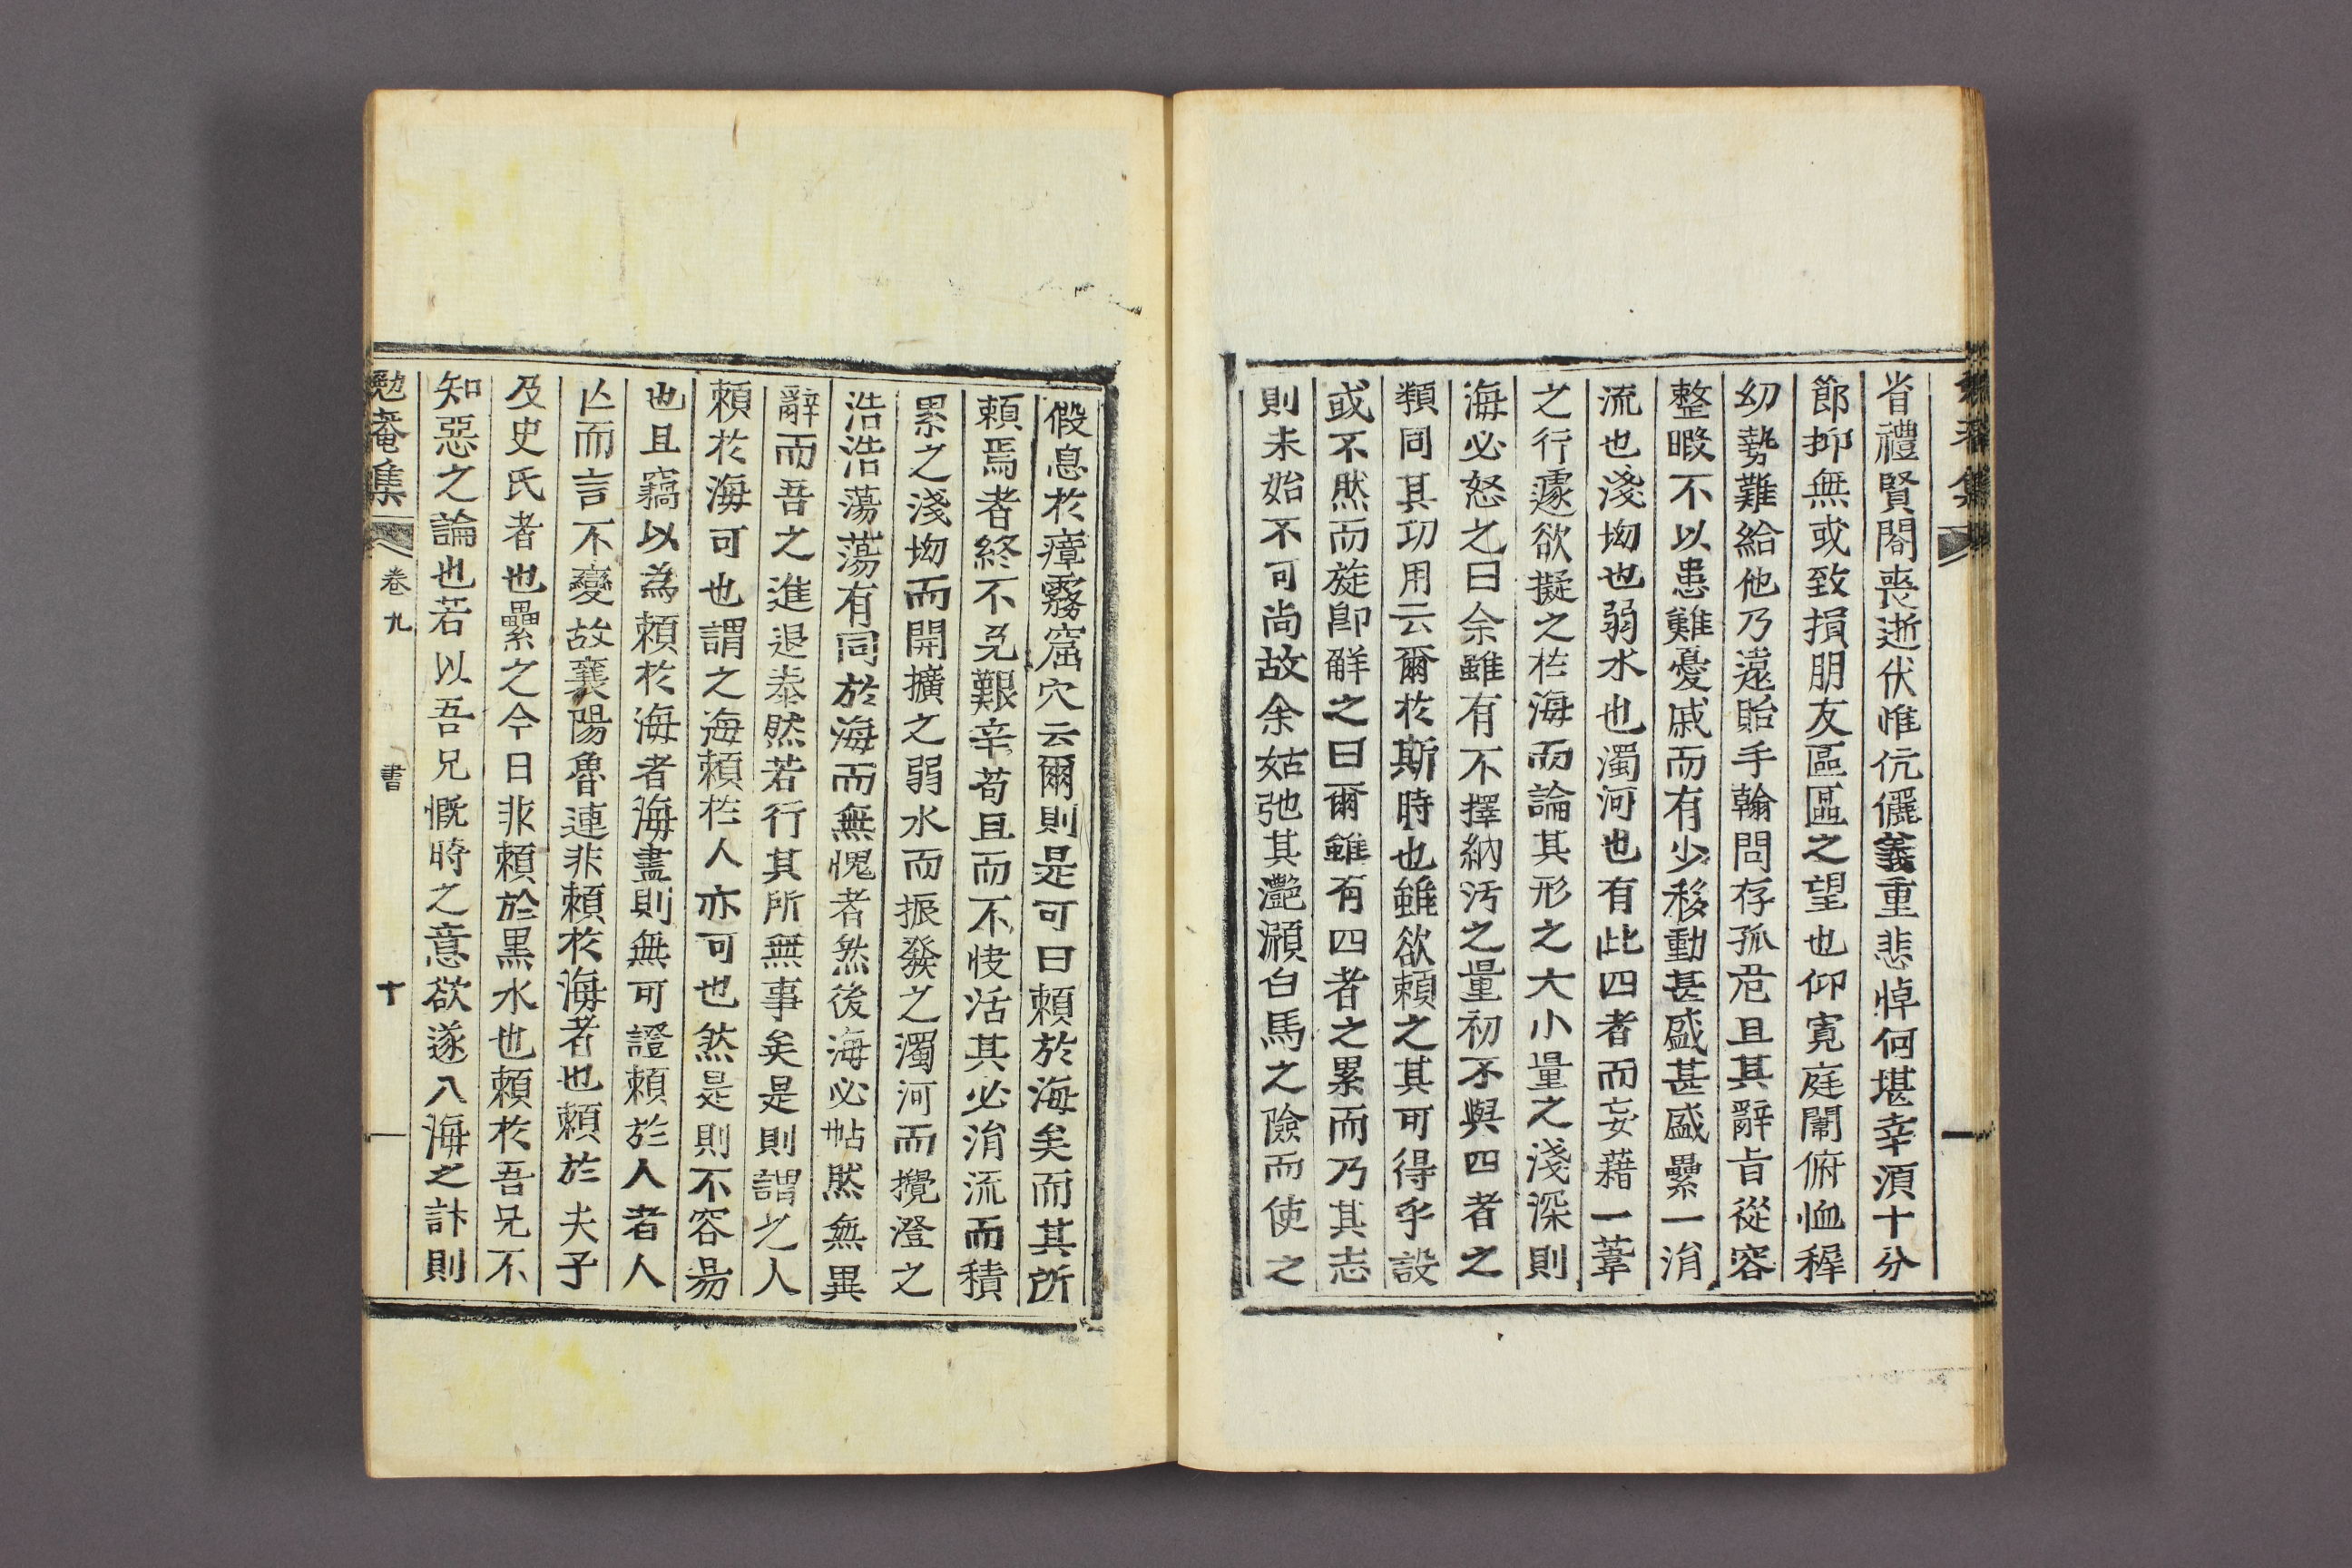 省禮賢閤喪逝伏惟伉儷義重悲悼何堪幸須十分
節抑無或致損朋友區區之望也仰寬庭闈俯恤穉
幼勢難給他乃遠貽手翰問存孤危且其辭旨從容
整暇不以患難憂戚而有少移動甚盛甚盛纍一涓
流也淺坳也弱水也濁河也有此四者而妄藉一葦
之行遽欲擬之於海而論其形之大小量之淺深則
海必怒之曰余雖有不擇納汚之量初不與四者之
類同其功用云爾於斯時也雖欲賴之其可得乎設
或不然而旋卽解之曰爾雖有四者之累而乃其志
則未始不可尚故余姑弛其灔澦白馬之險而使之
假息於瘴霧窟穴云爾則是可曰賴於海矣而其所
賴焉者終不免艱辛苟且而不快活其必涓流而積
累之淺坳而開擴之弱水而振發之濁河而攪澄之
浩浩蕩蕩有同於海而無愧者然後海必帖然無異
辭而吾之進退泰然若行其所無事矣是則謂之人
賴於海可也謂之海賴於人亦可也然是則不容易
也且竊以為賴於海者海盡則無可證賴於人者人
亾而言不變故襄陽魯連非賴於海者也賴於夫子
及史氏者也纍之今日非賴於黑水也賴於吾兄不
知惡之論也若以吾兄慨時之意欲遂入海之計則
勉菴集 卷九 書 十